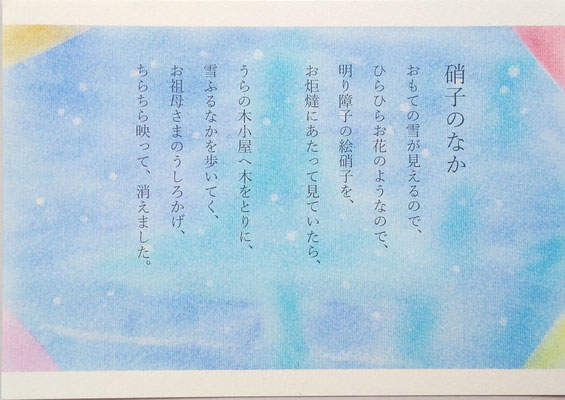 硝子のなか
おもての雪が見えるので、
ひらひらお花のようなので、
明り障子の絵硝子を、
お炬燵にあたって見ていたら、
うらの木小屋へ木をとりに、
雪ふるなかを歩いてく、
お祖母さまのうしろかげ、
ちらちら映って、消えました。